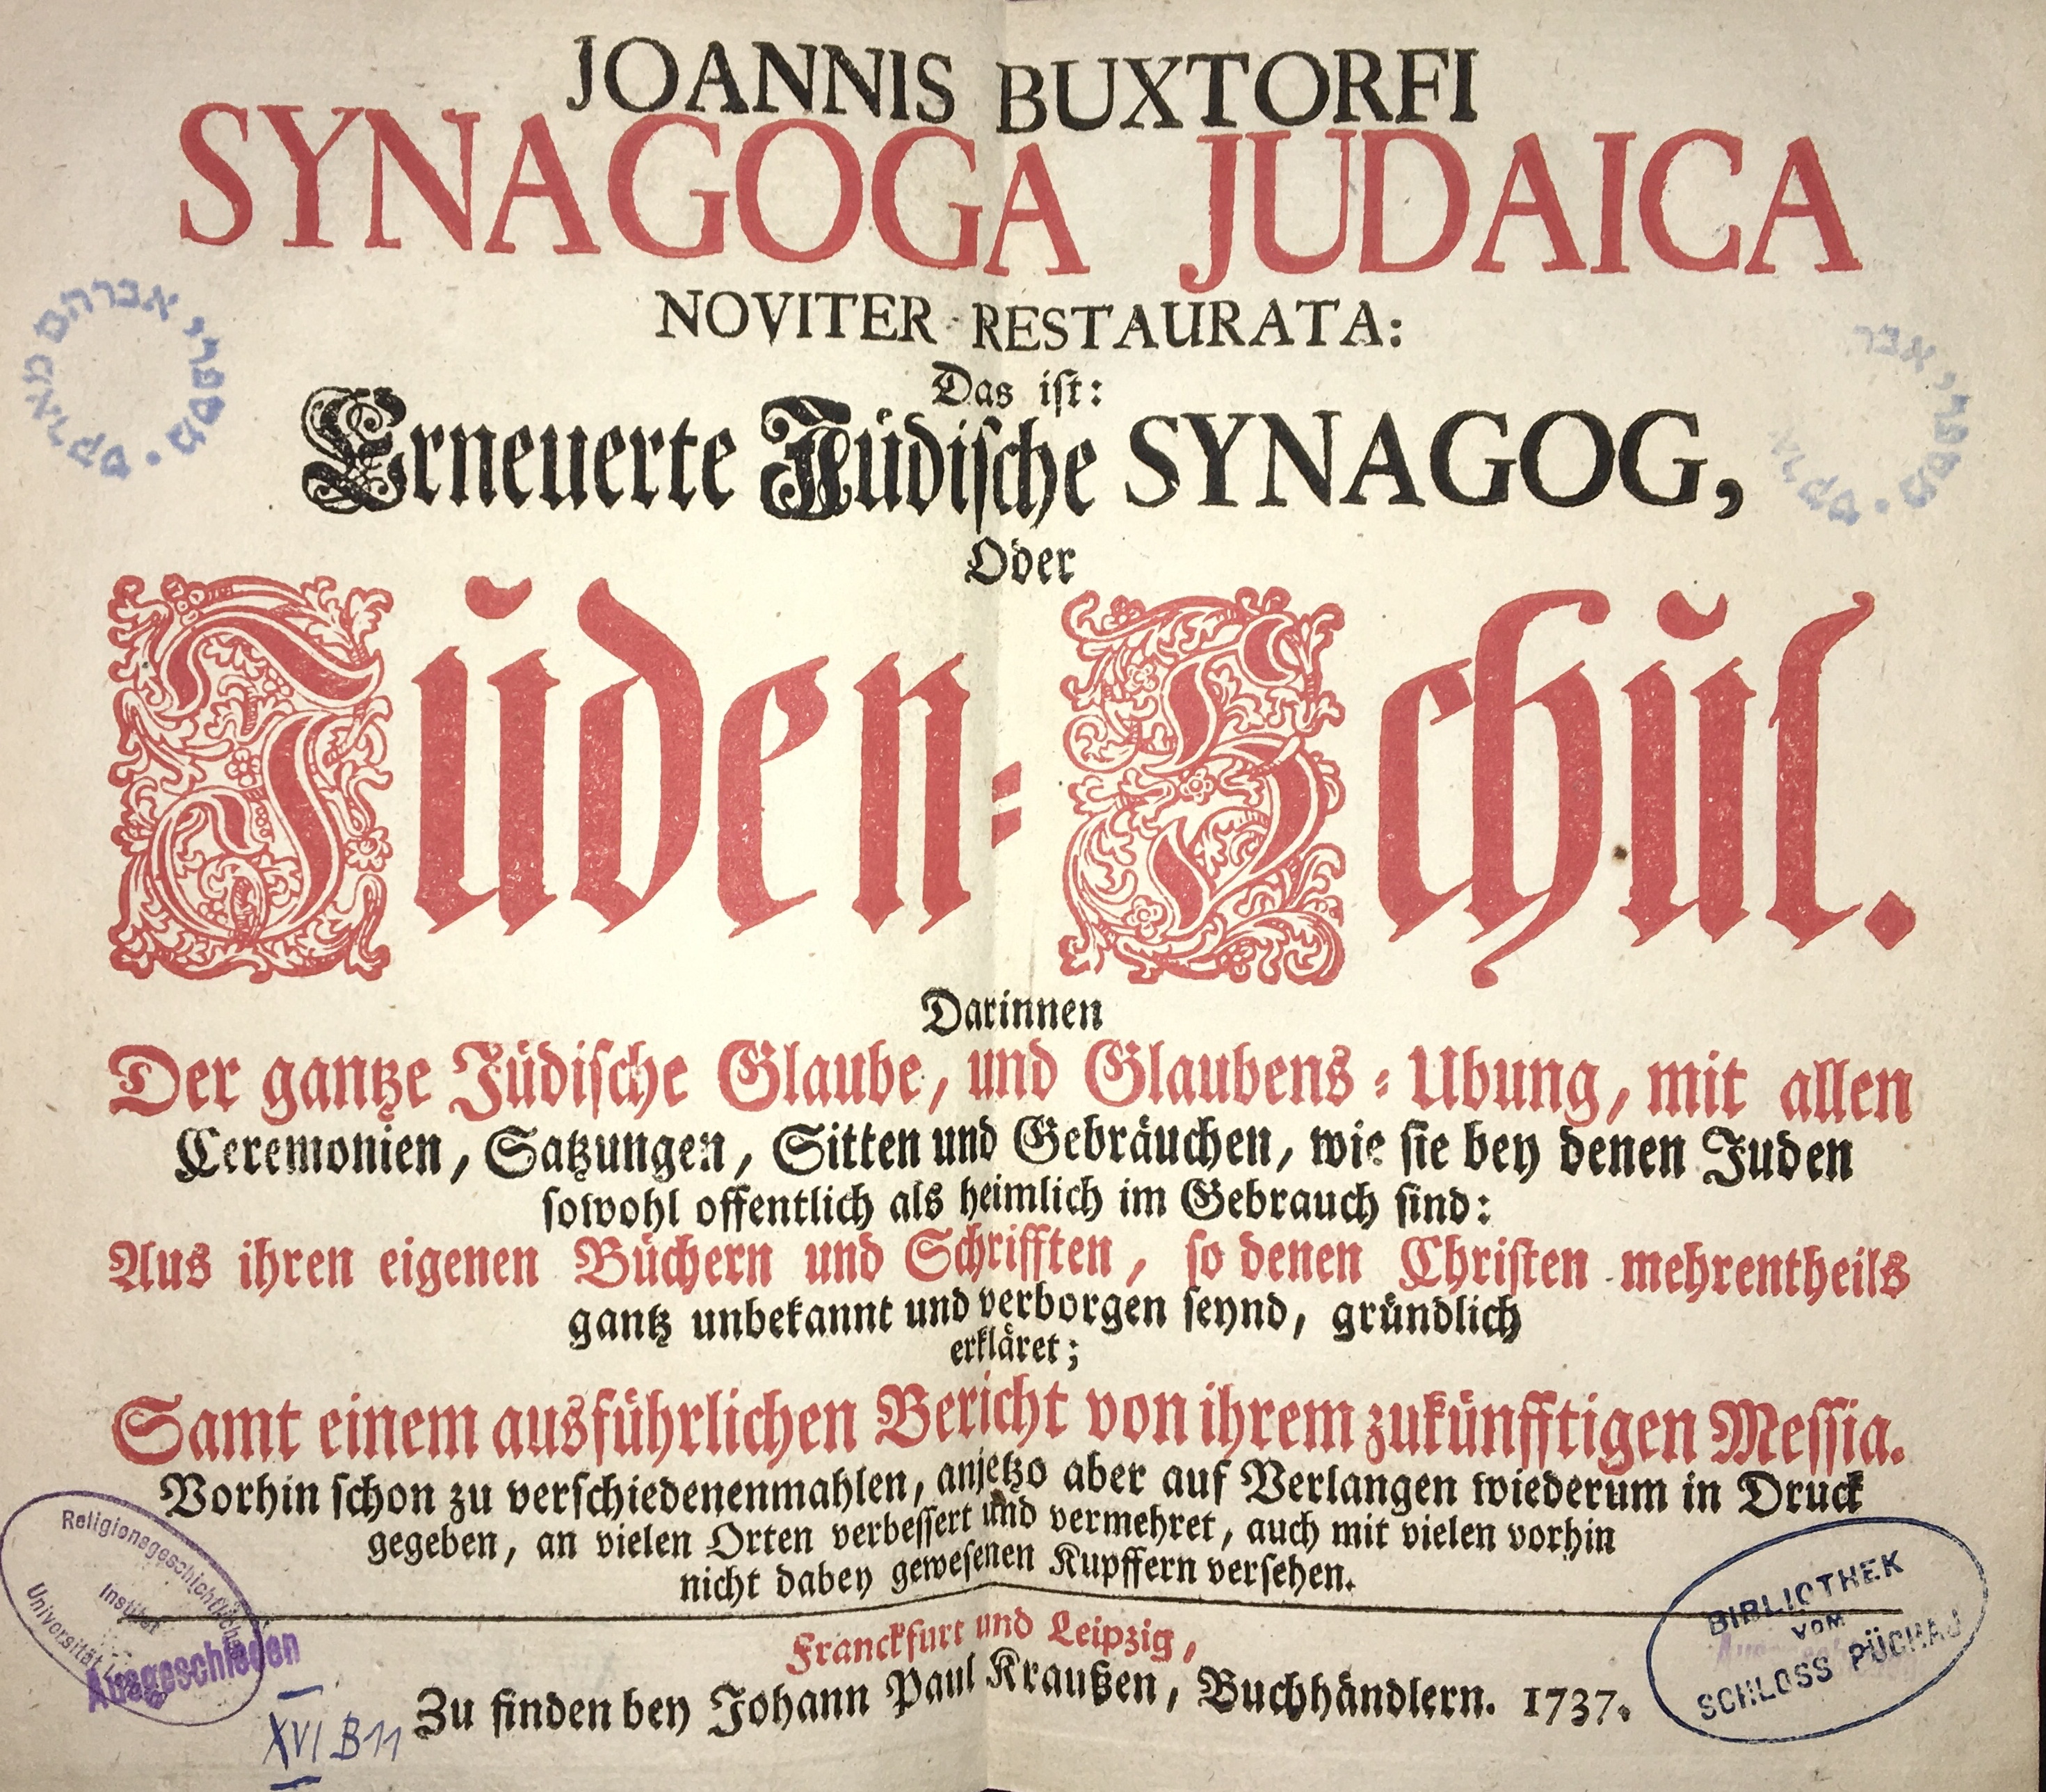 JOANNIS BUXTORFI
SYNAGOGA JUDAICA
NOVITER RESTAURATA:
Das ist:
Erneuerte Jüdische SYNAGOG,
Oder
Jüden-Schŭl.
Darinnen
Der gantze Jüdische Glaube, und Glaubens-Ubung, mit allen
Ceremonien, Satzungen, Sitten und Gebräuchen, wie sie bey denen Juden
sowohl offentlich als heimlich im Gebrauch sind:
Aus ihren eigenen Büchern und Schrifften, so denen Christen mehrentheils
gantz unbekannt und verborgen seynd, gründlich
erkläret;
Samt einem ausführlichen Bericht von ihrem zukünfftigen Messia.
Vorhin schon zu verschiedenenmahlen, anjetzo aber auf Verlangen wiederum in Druck
gegeben, an vielen Orten verbessert und vermehret, auch mit vielen vorhin
nicht dabey gewesenen Kupffern versehen.
Franckfurt und Leipzig,
Zu finden bey Johann Paul Kraußen, Buchhändlern. 1737.
מספרי אברהם מארקס
מספרי אבר
Religionsgeschichtliches
Institut
Universität
Ausgeschieden
XVI B 11
BIBLIOTHEK
VOM
SCHLOSS PÜCHAU